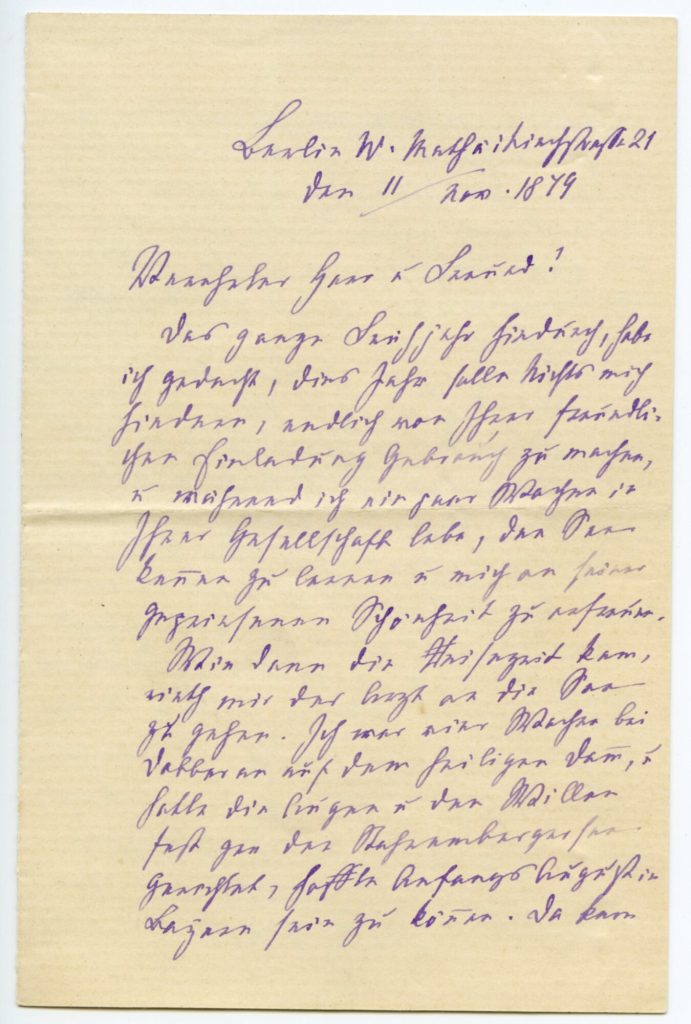 Berlin W. Mathäikirchstrasse 21
den 11/ Nov. 1879
Verehrter Herr u Freund!
Das ganze Frühjahr hindurch, habe
ich gedacht, dies Jahr solle Nichts mich
hindern, endlich von Ihrer freundli-
chen Einladung Gebrauch zu machen,
u während ich ein paar Wochen in
Ihrer Gesellschaft lebe, den See
kennen zu lernen u mich an seiner
gepriesenen Schönheit zu erfreuen.
Wie dann die Reisezeit kam,
rieth mir der Arzt an die See
zu gehen. Ich war vier Wochen bei
Dobberan auf dem heiligen Dam̄, u
hatte die Augen u den Willen
fest gen den Stahrembergersee
gerichtet, hoffte Anfangs August in
Bayern sein zu können. Da kam